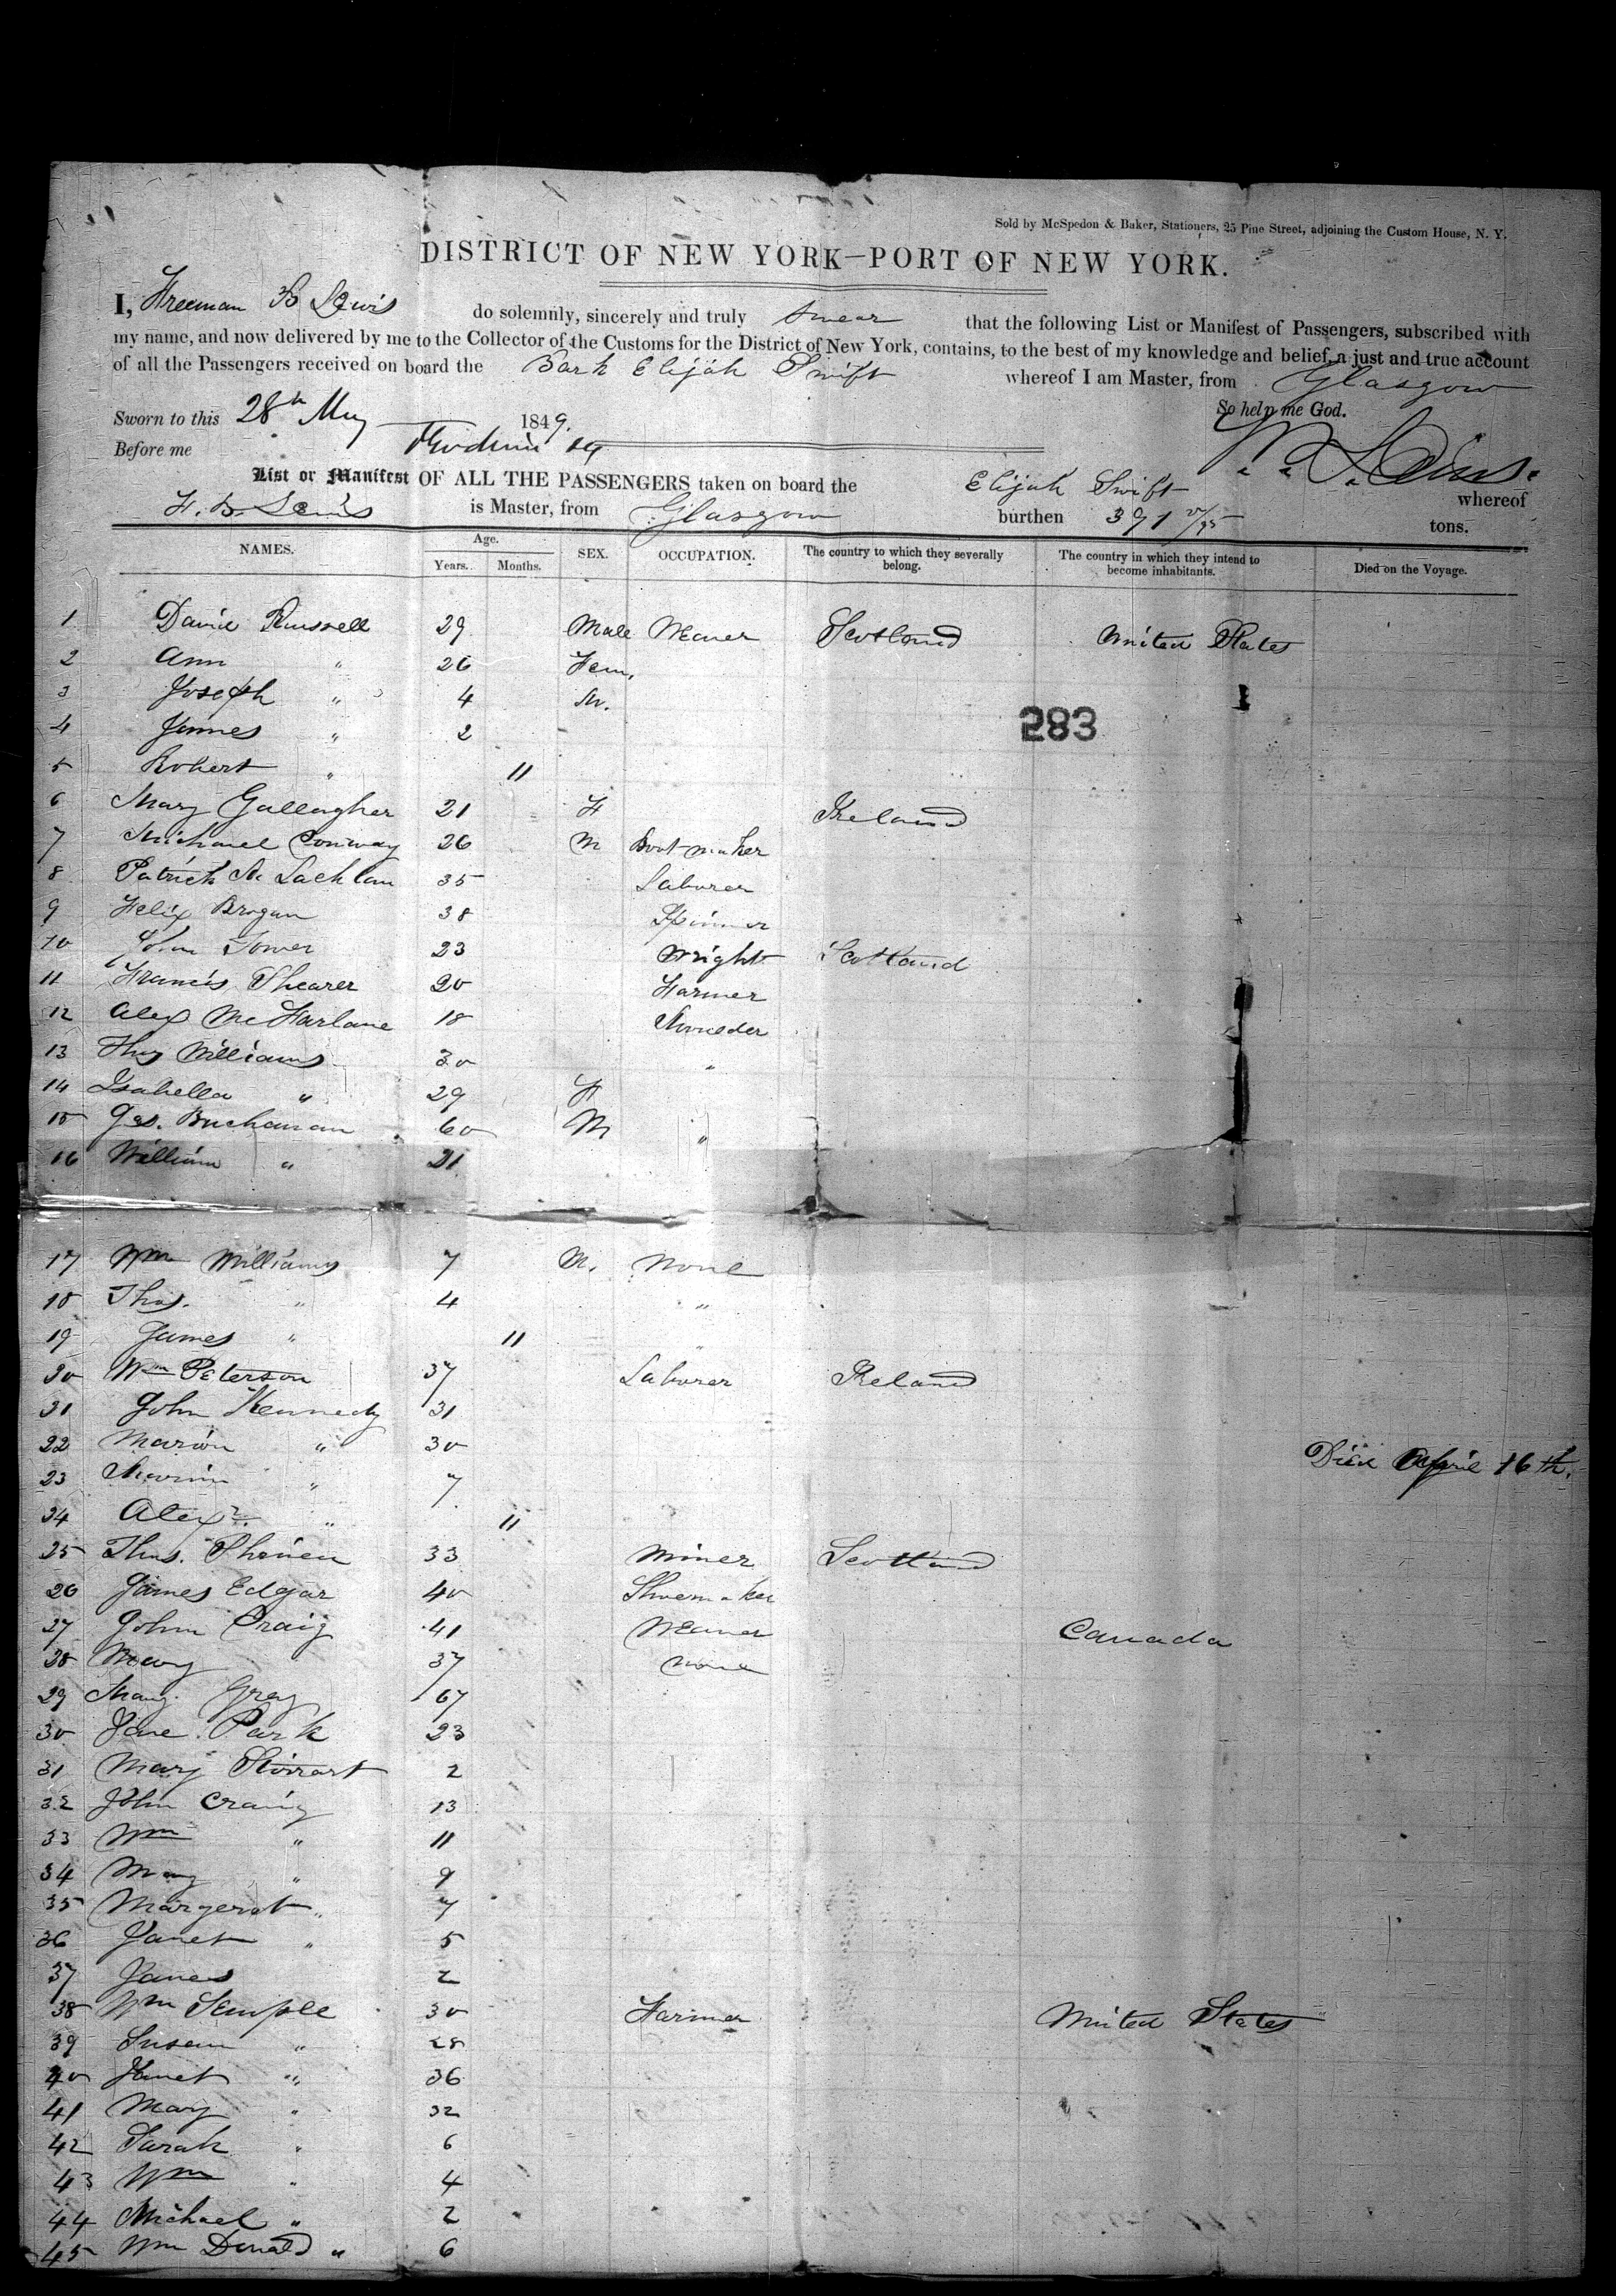 Sold by McSpedon & Baker, Stationers, 25 Pine Street, adjoining the Custom House, N. Y.
DISTRICT OF NEW YORK—PORT OF NEW YORK.
I, Freeman B Lewis do solemnly, sincerely and truly swear that the following List or Manifest of Passengers, subscribed with
my name, and now delivered by me to the Collector of the Customs for the District of New York, contains, to the best of my knowledge and belief, a just and true account
of all the Passengers received on board the Bark Elijah Swift whereof I am Master, from Glasgow
So help me God.
Sworn to this 28th May 1849.
Before me
List or Manifest OF ALL THE PASSENGERS taken on board the Elijah Swift whereof
F. B. Lewis is Master, from Glasgow burthen 391 tons.
NAMES. Age. Years. Months. SEX. OCCUPATION. The country to which they severally belong. The country in which they intend to become inhabitants. Died on the Voyage.
1 David Russell 29 Male Weaver Scotland United States
2 Ann " 26 Fem.
3 Joseph " 4 M.
283
4 James " 2
5 Robert " 11
6 Mary Gallagher 21 F Ireland
7 Michael Conway 26 M Bootmaker
8 Patrick Mc Lachlan 35 Laborer
9 Felix Brogan 38 Spinner
10 John Tower 23 Wright Scotland
11 Francis Shearer 20 Farmer
12 Alex McFarlane 18 Moulder
13 Thos Williams 30 "
14 Isabella " 29 F
15 Geo. Buchanan 60 M "
16 William " 21
17 Wm Williams 7 M. None
18 Thos. " 4 "
19 James " 11
20 Wm Peterson 37 Laborer Ireland
21 John Kennedy 31
22 Marion " 30 Died April 16th.
23 Marion " 7
24 Alexr. " 11
25 Thos. 33 Miner Scotland
26 James Edgar 40 Shoemaker
27 John Craig 41 Weaver Canada
28 Mary 37 None
29 Mary Gray 67
30 Jane Park 23
31 Mary Stirrart 2
32 John Craig 13
33 Wm " 11
34 Mary " 9
35 Margeret " 7
36 Janet " 5
37 James 2
38 Wm Semple 30 Farmer United States
39 Susan " 28
40 Janet " 36
41 Mary " 32
42 Sarah " 6
43 Wm " 4
44 Michael " 2
45 Wm Donald " 6